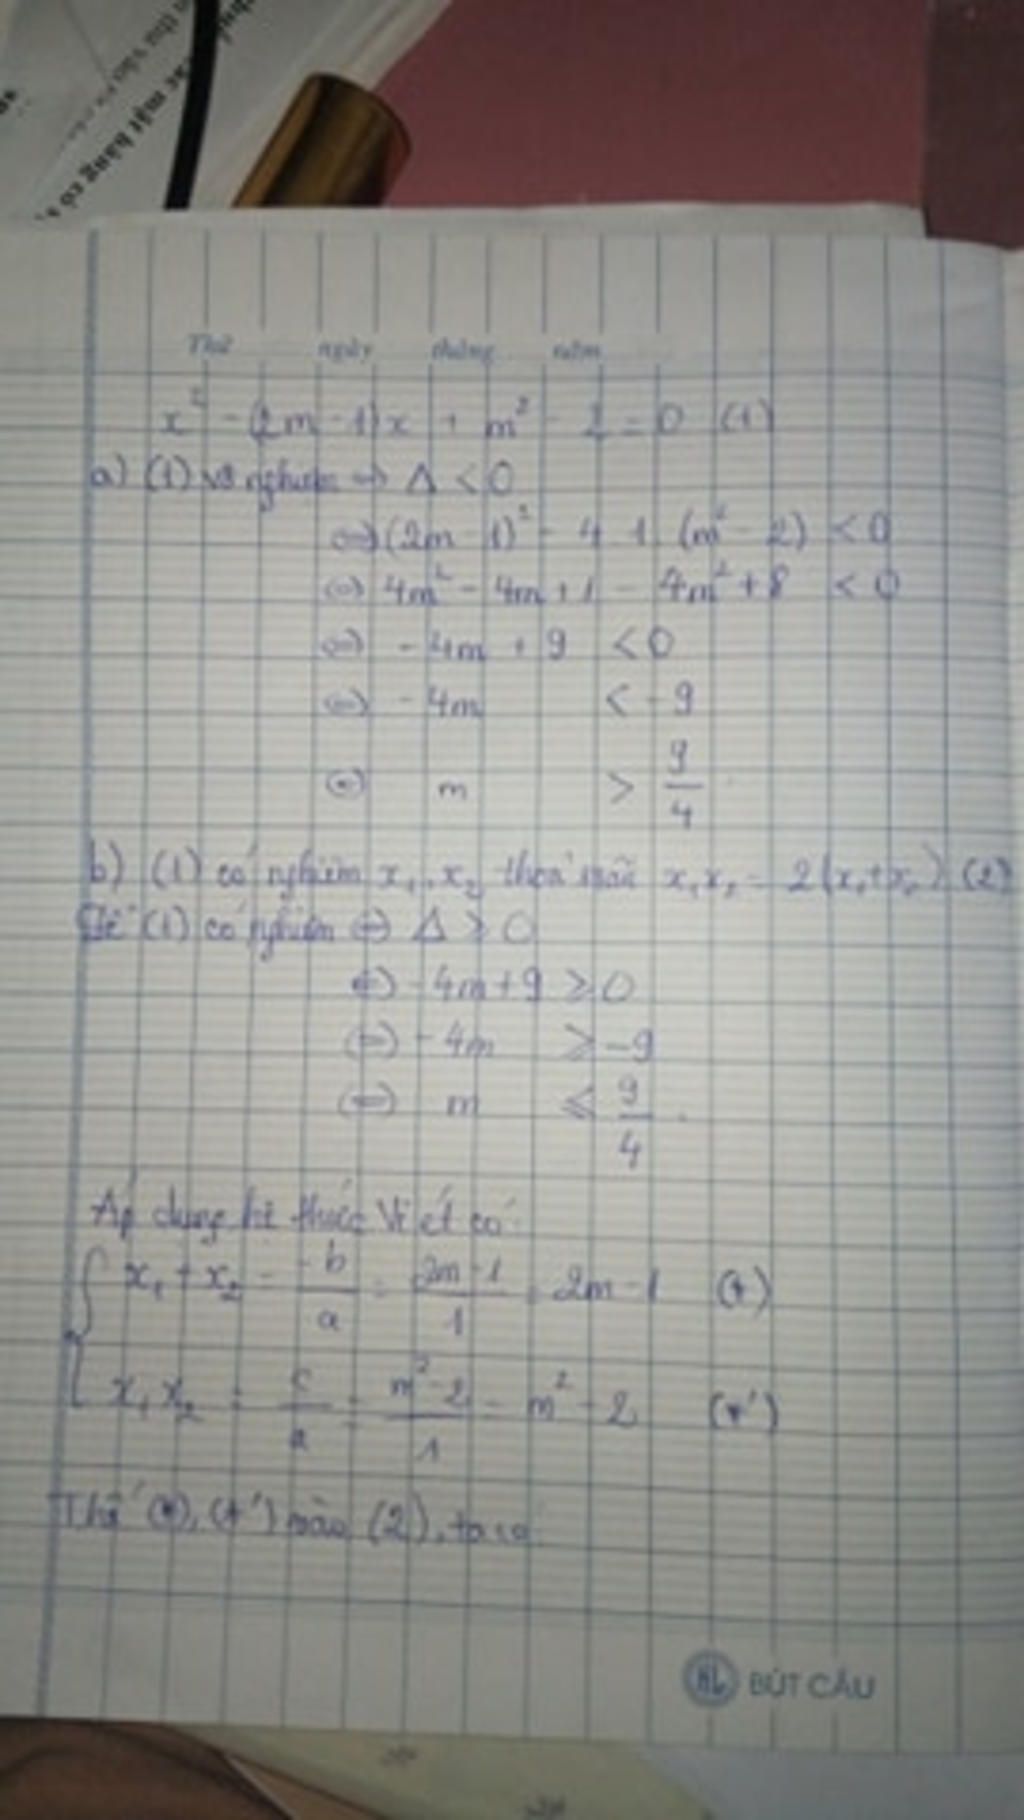 các mặt hàng có
Thứ ngày tháng năm
x² - (2m - 1)x + m² - 2 = 0 (1)
a) (1) vô nghiệm ⇔ Δ < 0
⇔ (2m - 1)² - 4.1.(m² - 2) < 0
⇔ 4m² - 4m + 1 - 4m² + 8 < 0
⇔ - 4m + 9 < 0
⇔ - 4m < - 9
⇔ m > 9/4
b) (1) có nghiệm x₁, x₂ thoả mãn x₁x₂ = 2(x₁+x₂) (2)
Để (1) có nghiệm ⇔ Δ ≥ 0
⇔ - 4m + 9 ≥ 0
⇔ - 4m ≥ -9
⇔ m ≤ 9/4.
Áp dụng hệ thức Viét có:
{ x₁ + x₂ = -b/a = 2m-1/1 = 2m - 1 (*)
x₁x₂ = c/a = m²-2/1 = m² - 2 (*')
Thế (*), (*') vào (2), ta có
HL BÚT CÂU